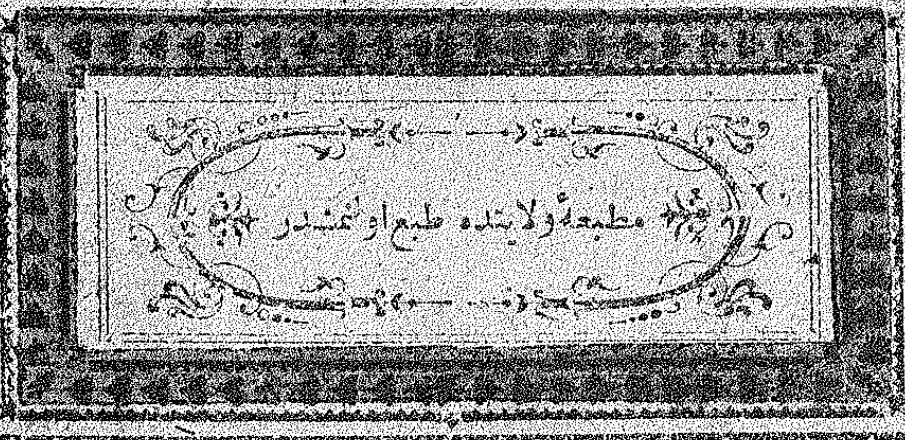 مطبعۀ ولایتده طبع اولنمشدر